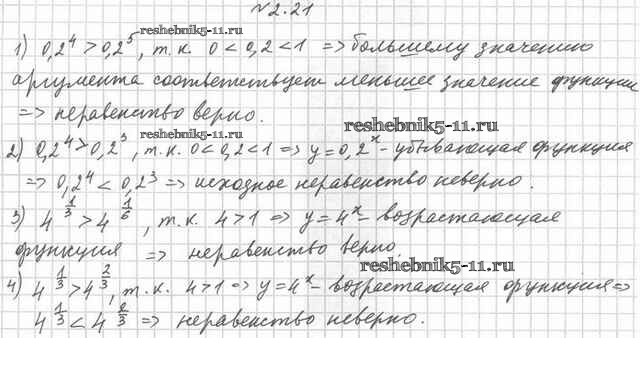 №2.21
reshebnik5-11.ru
1) 0,2⁴ > 0,2⁵, т.к. 0 < 0,2 < 1 => большему значению
аргумента соответствует меньшее значение функции
=> неравенство верно.
reshebnik5-11.ru
reshebnik5-11.ru
2) 0,2⁴ > 0,2³, т.к. 0 < 0,2 < 1 => y = 0,2ˣ - убывающая функция
=> 0,2⁴ < 0,2³ => исходное неравенство неверно.
reshebnik5-11.ru
3) 4^(1/3) > 4^(1/6), т.к. 4 > 1 => y = 4ˣ - возрастающая
функция => неравенство верно.
reshebnik5-11.ru
4) 4^(1/3) > 4^(2/3), т.к. 4 > 1 => y = 4ˣ - возрастающая функция =>
4^(1/3) < 4^(2/3) => неравенство неверно.